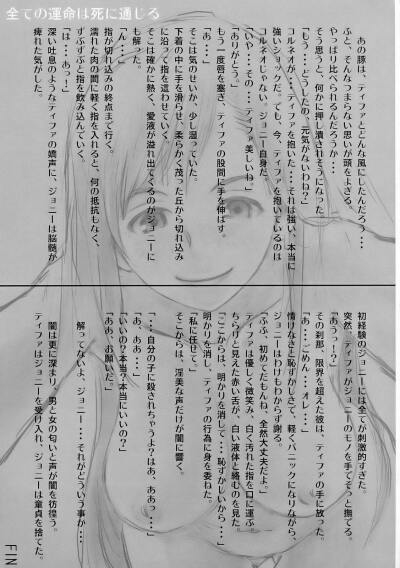 全ての運命は死に通じる
あの豚は、ティファとどんな風にしたんだろう・・・
ふと、そんなつまらない思いが頭をよぎる。
やっぱり比べられるんだろうか・・・
そう思うと、何かに押し潰されそうになった。
「もう・・・どうしたの、元気がないわね？」
コルネオが・・・ティファを抱いた・・・それは強い、本当に
強いショックだ。でも、今、ティファを抱いているのは
コルネオじゃない、ジョニー自身だ。
「いや・・・その・・・ティファ美しいね」
「ありがとう。」
もう一度唇を塞ぎ、ティファの股間に手を伸ばす。
「あ・・・」
そこは気のせいか、少し湿っていた。
下着の中に手を滑らせ、柔らかく茂った丘から切れ込み
に沿って指を這わせていく。
そこは確かに熱く、愛液が溢れ出てくるのがジョニーに
も解った。
「ん・・・」
指が切れ込みの終点まで行く。
濡れた肉の間に軽く指を入れると、何の抵抗もなく、
ずぶずぶと指を飲み込んでいく。
「は・・・あっ・・・」
深い吐息のようなティファの嬌声に、ジョニーは脳髄が
痺れた気がした。
初経験のジョニーには全てが刺激的すぎた。
突然、ティファがジョニーのモノを手でそっと撫でる。
「あうっ！？」
その刹那、限界を超えた彼は、ティファの手に放った。
「あ・・・ごめん・・・オレ・・・」
情けなさと恥ずかしさで、軽くパニックになりながら、
ジョニーはわけもわからず謝る。
「ふふ、初めてだもんね、全然大丈夫だよ。」
ティファは優しく微笑み、白く汚れた指を口に運ぶ。
ちらりと見えた赤い舌が、白い液体と絡むのを見た。
「ここからは、明かりを消して・・・恥ずかしいから・・・」
明かりを消し、ティファの行為に身を委ねた。
「私に任せて」
そこからは、淫美な声だけが闇に響く。
「・・・自分の子に殺されちゃうよ？はあ、ああっ・・・」
「あ、ああ・・・」
「いいの？本当？本当にいいの？」
「ああ、お願いだ。」
解ってないよ、ジョニー・・・それがどういう事か・・・
闇は更に深まり、男と女の匂いと声が闇を彷徨う。
ティファはジョニーを受け入れ、ジョニーは童貞を捨てた。
FIN